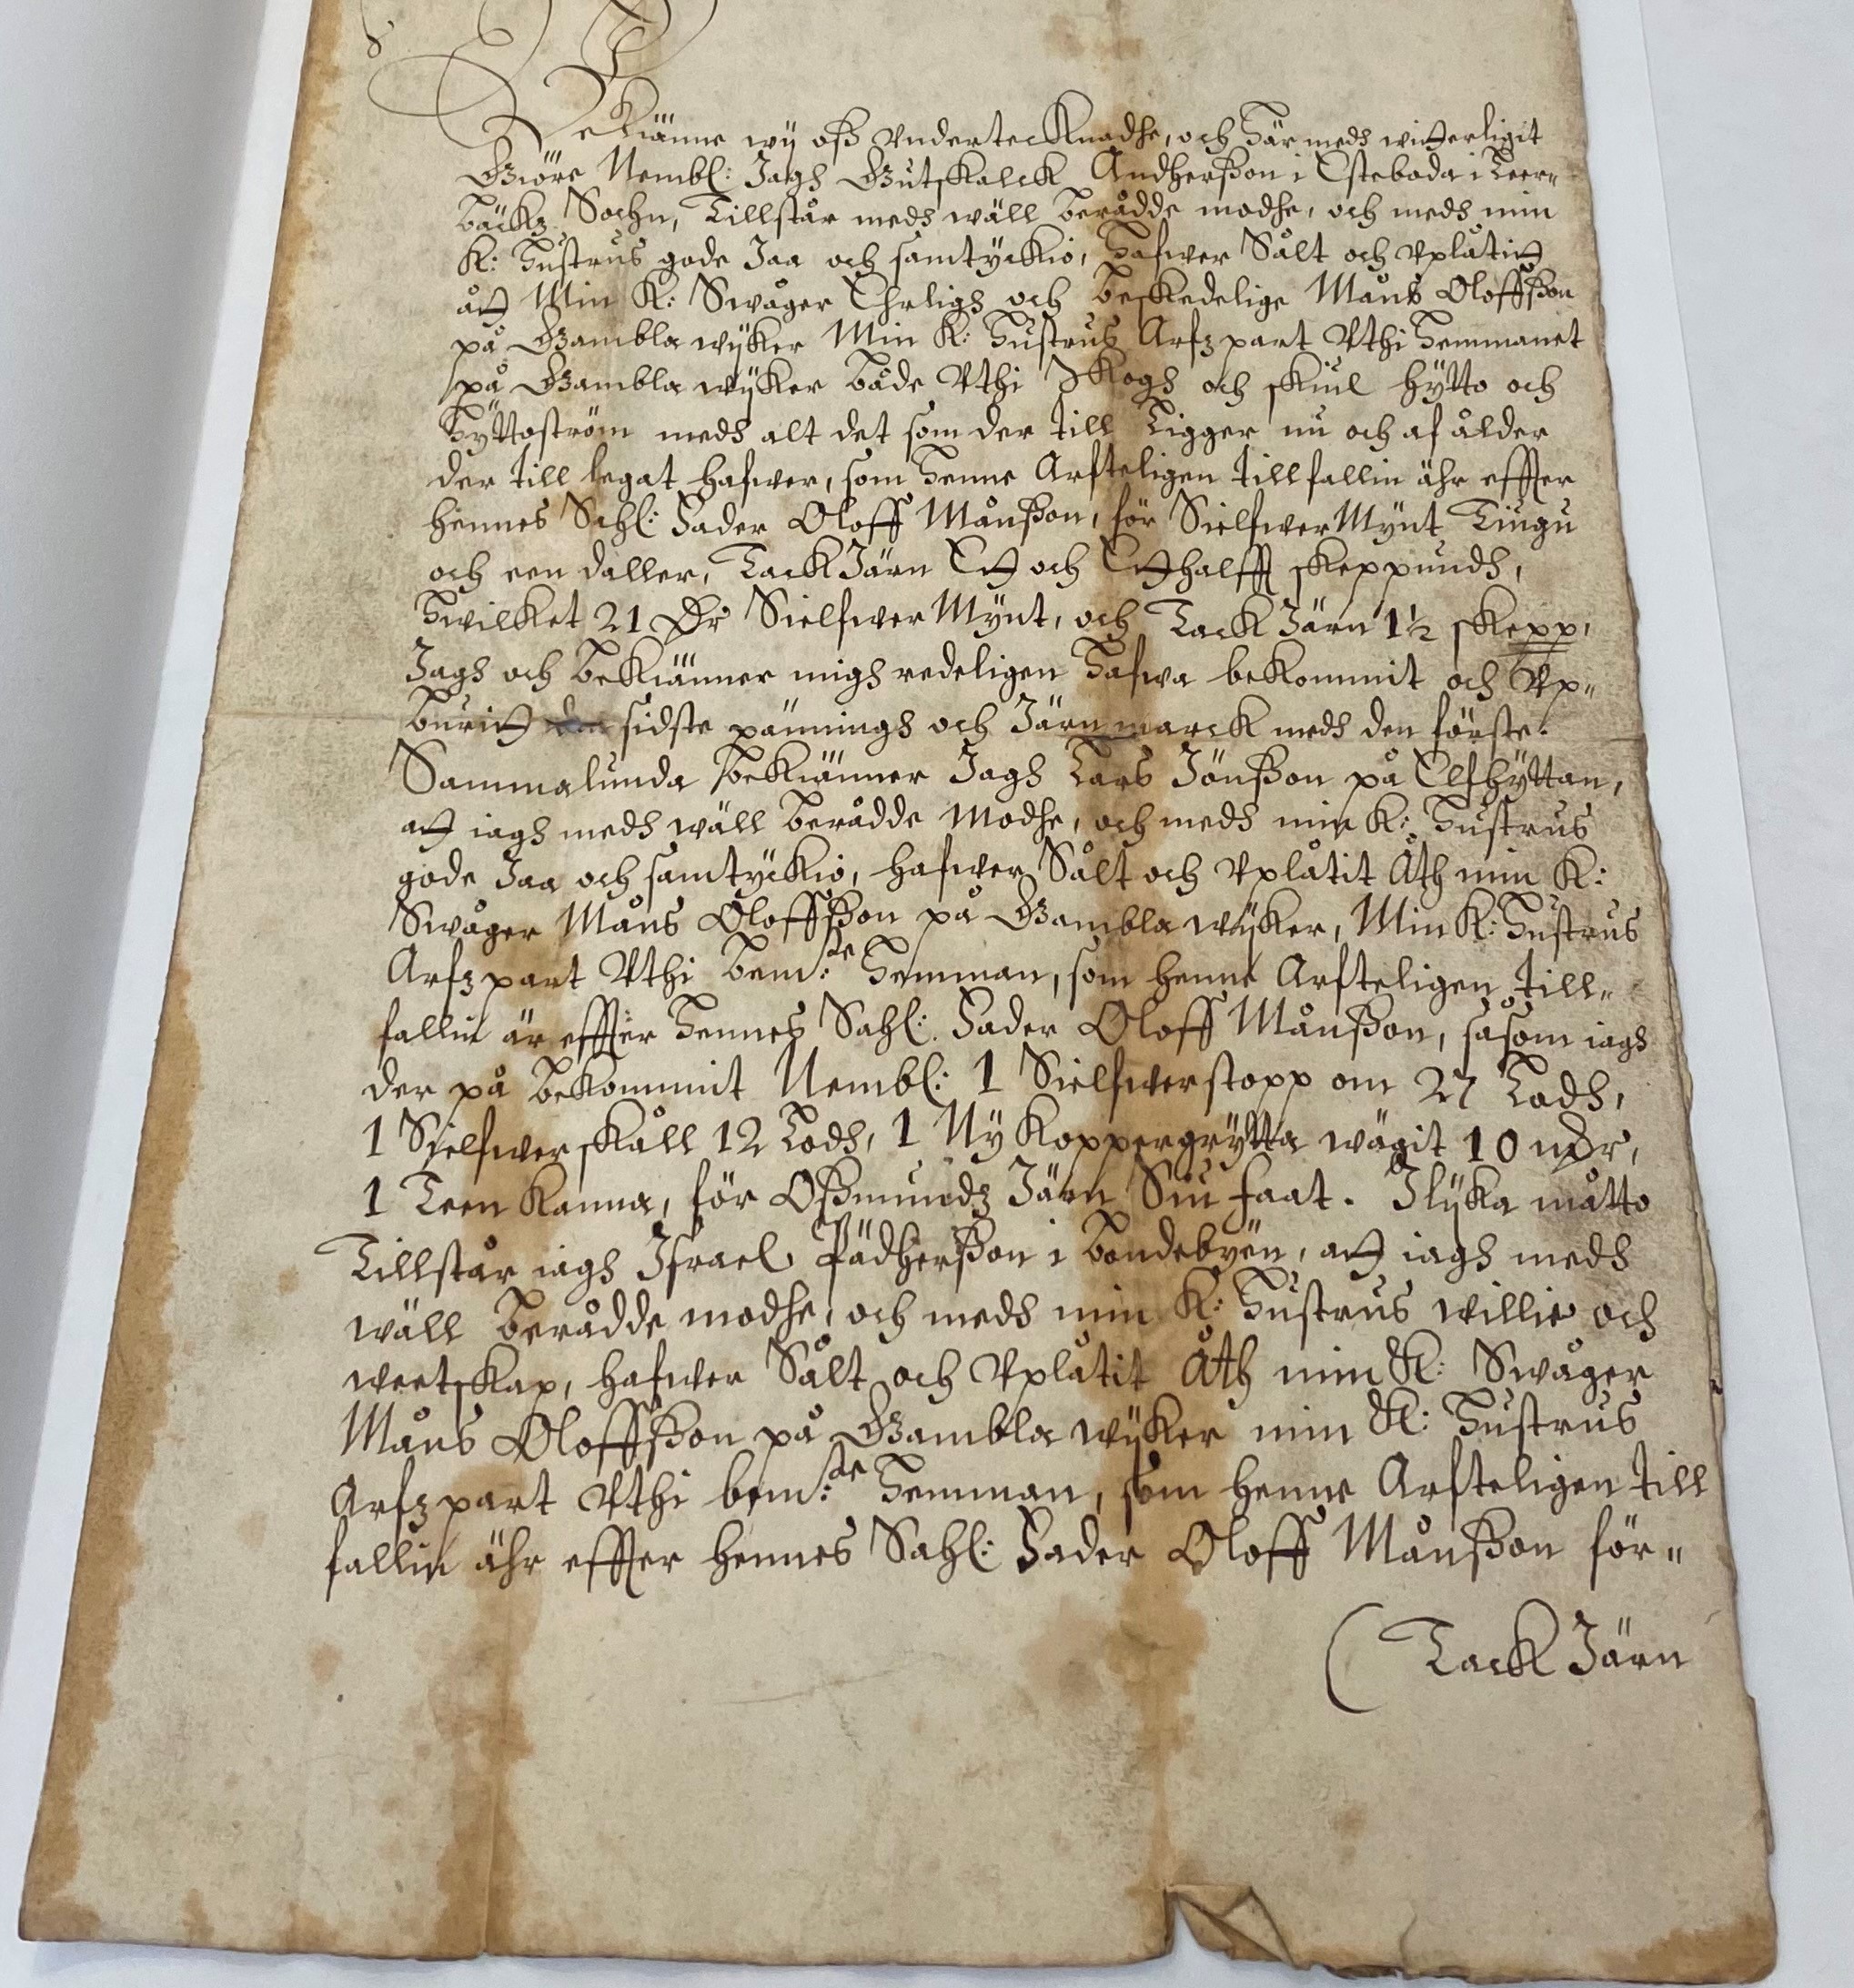 Bekiänne wij oss vndertecknadhe, och här medh witterligit
Giöre Nembl: Jagh Gutskalck Andhersson i Esteboda i Leer=
bäckz Sochn, Tillstår medh wäll berådde modhe, och medh min
K: Hustrus gode Jaa och samtyckio, hafwer Sålt och vplåtit
åt Min K: Swåger Ehrligh och beskedelige Måns Oloffsson
på Gambla wijker Min K: Hustrus Arfz part Vthi Hemmanet
på Gambla wijker både Vthi Skogh och skiul hytto och
Hyttoström medh alt det som der till Ligger nu och af ålder
der till legat hafwer, som henne Arfteligen tillfallin ähr effter
hennes Sahl: Fader Oloff Månsson, för Sielfwer Mynt Tiugu
och een daller, Tack Järn Ett och Ett halfft skeppundh,
Hwilket 21 Dr Sielfwer Mynt, och Tack Järn 1½ skepp,
Jagh och bekiänner migh redeligen hafwa bekommit och Vp=
burit sidste pänningh och Järn marck medh den förste.
Sammalunda bekiänner Jagh Lars Jönsson på Elfhyttan,
at iagh medh wäll berådde modhe, och medh min K: Hustrus
gode Jaa och samtyckio, hafwer Sålt och vplåtit Åth min K:
Swåger Måns Oloffsson på Gambla wijker, Min K: Hustrus
Arfz part Vthi bem:de Hemman, som henne Arfteligen till=
fallin är effter Hennes Sahl: Fader Oloff Månsson, såsom iagh
der på bekommit Nembl: 1 Sielfwerstopp om 27 Lodh,
1 Sielfwer skåll 12 Lodh, 1 Ny Koppergrytta wägit 10 mDr,
1 Teen Kanna, för Ossmundz Järn Siu faat. J lijka måtto
Tillstår iagh Jsrael Pädhersson i bondebyen, at iagh medh
wäll berådde modhe, och medh min K: Hustrus willie och
weetskap, hafwer Sålt och Vplåtit Åth min K: Swåger
Måns Oloffsson på Gambla wijker min K: Hustrus
Arfz part Vthi bem:de Hemman, som henne Arfteligen till
fallin ähr effter hennes Sahl: Fader Oloff Månsson för=
( Tack Järn